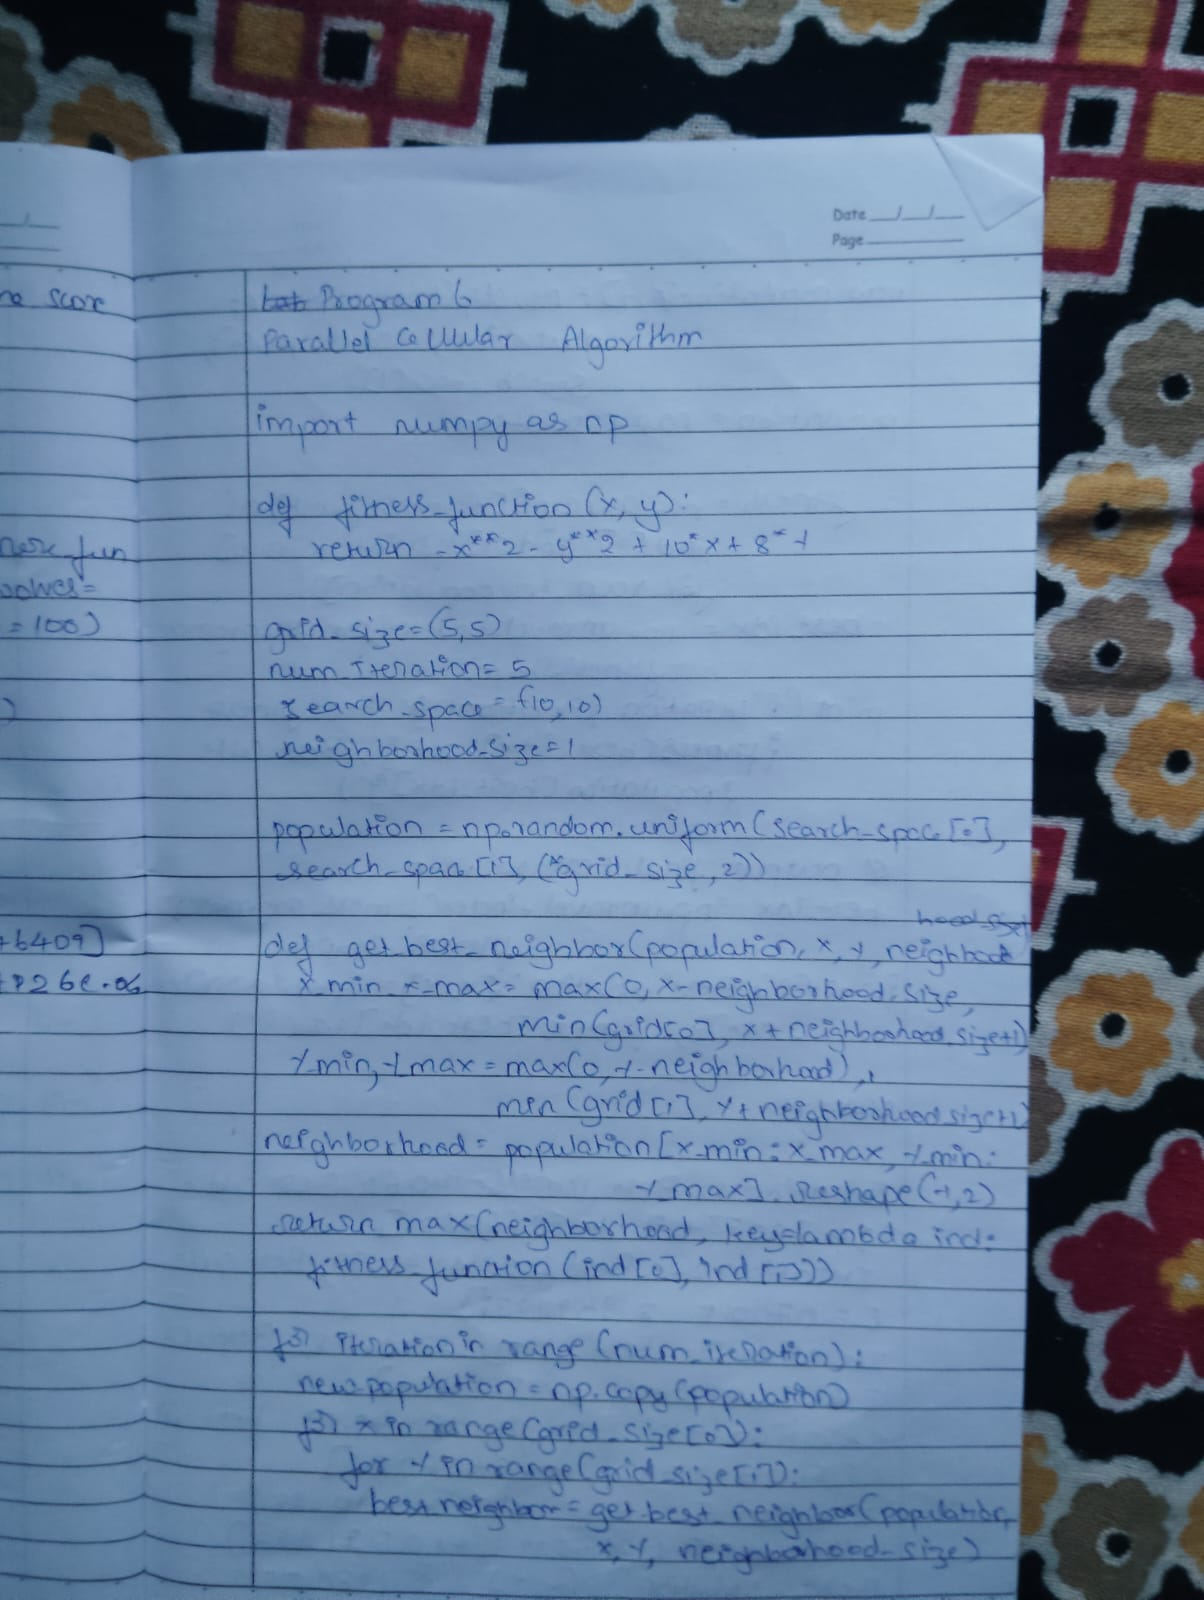 Date
Page
ne score
nere fun
= 100)
+6409]
Lab Program 6
Parallel Cellular Algorithm
import numpy as np
def fitness_function (x, y):
return -x**2 - y**2 + 10*x + 8*y
grid_size=(5,5)
num_iteration= 5
search_space = (-10,10)
neighborhood_size=1
population = np.random.uniform(search_space[0],
search_space[1], (*grid_size, 2))
hood_size)
def get_best_neighbor(population, x, y, neighbor
x_min, x_max= max(0, x-neighborhood_size,
min(grid[0], x + neighborhood_size+1)
y_min, y_max = max(0, y-neighborhood),
min (grid[1], y + neighborhood size+1)
neighborhood = population [x_min: x_max, y_min:
y_max]. reshape(-1,2)
return max(neighborhood, key=lambda ind:
fitness_function (ind[0], ind[1]))
for iteration in range (num_iteration):
new_population = np.copy(population)
for x in range (grid_size[0]):
for y in range (grid_size[1]):
best neighbor = get_best_neighbor(population,
x, y, neighborhood_size)